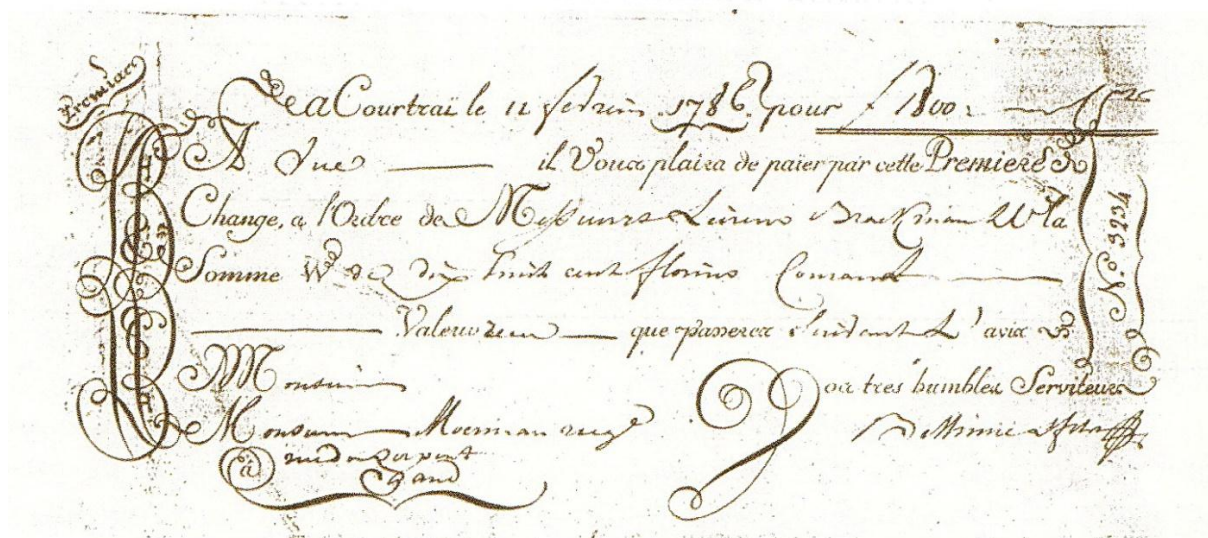 Premiere
a Courtrai le 11 fevrier 1786. pour f 1800:
A Vue il Vous plaira de paier par cette Premiere de
Change, a l'Ordre de Messieurs la
Somme de dix huit cent florins Courant
Valeur que passerez suivant L'avis de
Monsieur Vos tres humbles Serviteurs
Monsieur
à
Gand
No. 3234